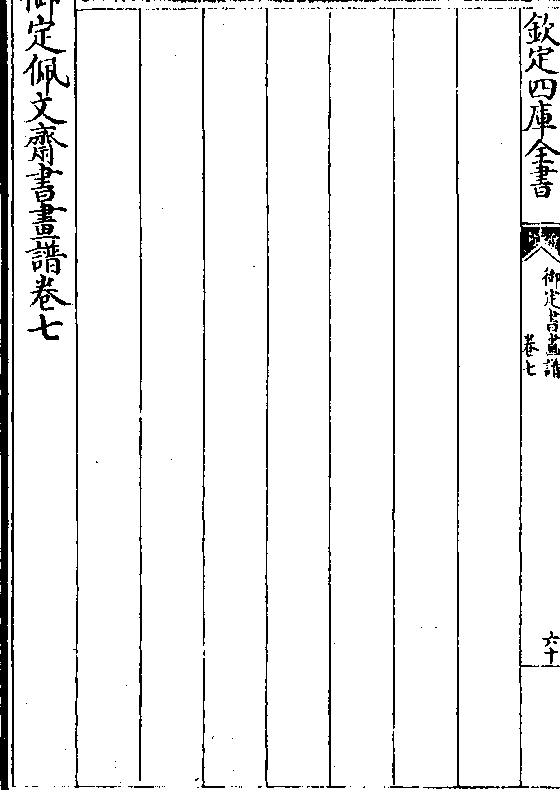 欽定四庫全書
御定書畫譜
卷七
六十
御定佩文齋書畫譜卷七